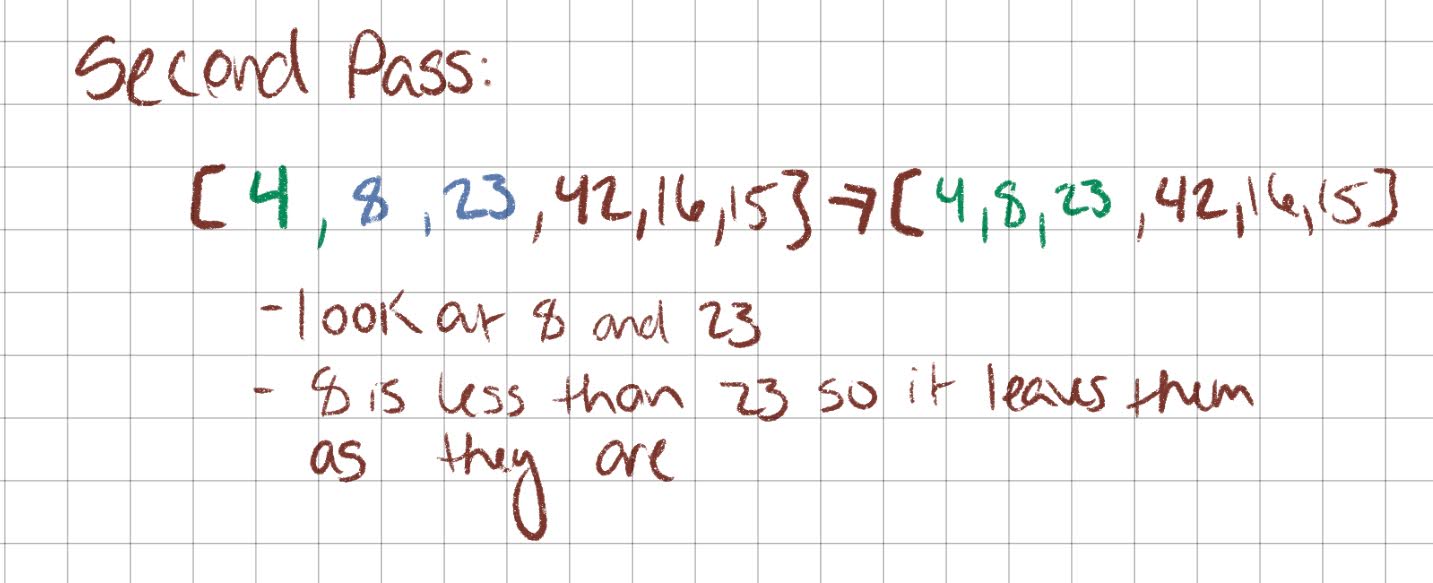 Second Pass:
[ 4, 8, 23, 42, 16, 15] → [4, 8, 23, 42, 16, 15]
- look at 8 and 23
- 8 is less than 23 so it leaves them
as they are